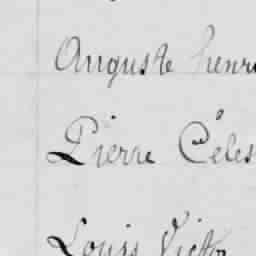 Auguste henr
Pierre Céles
Louis Victo